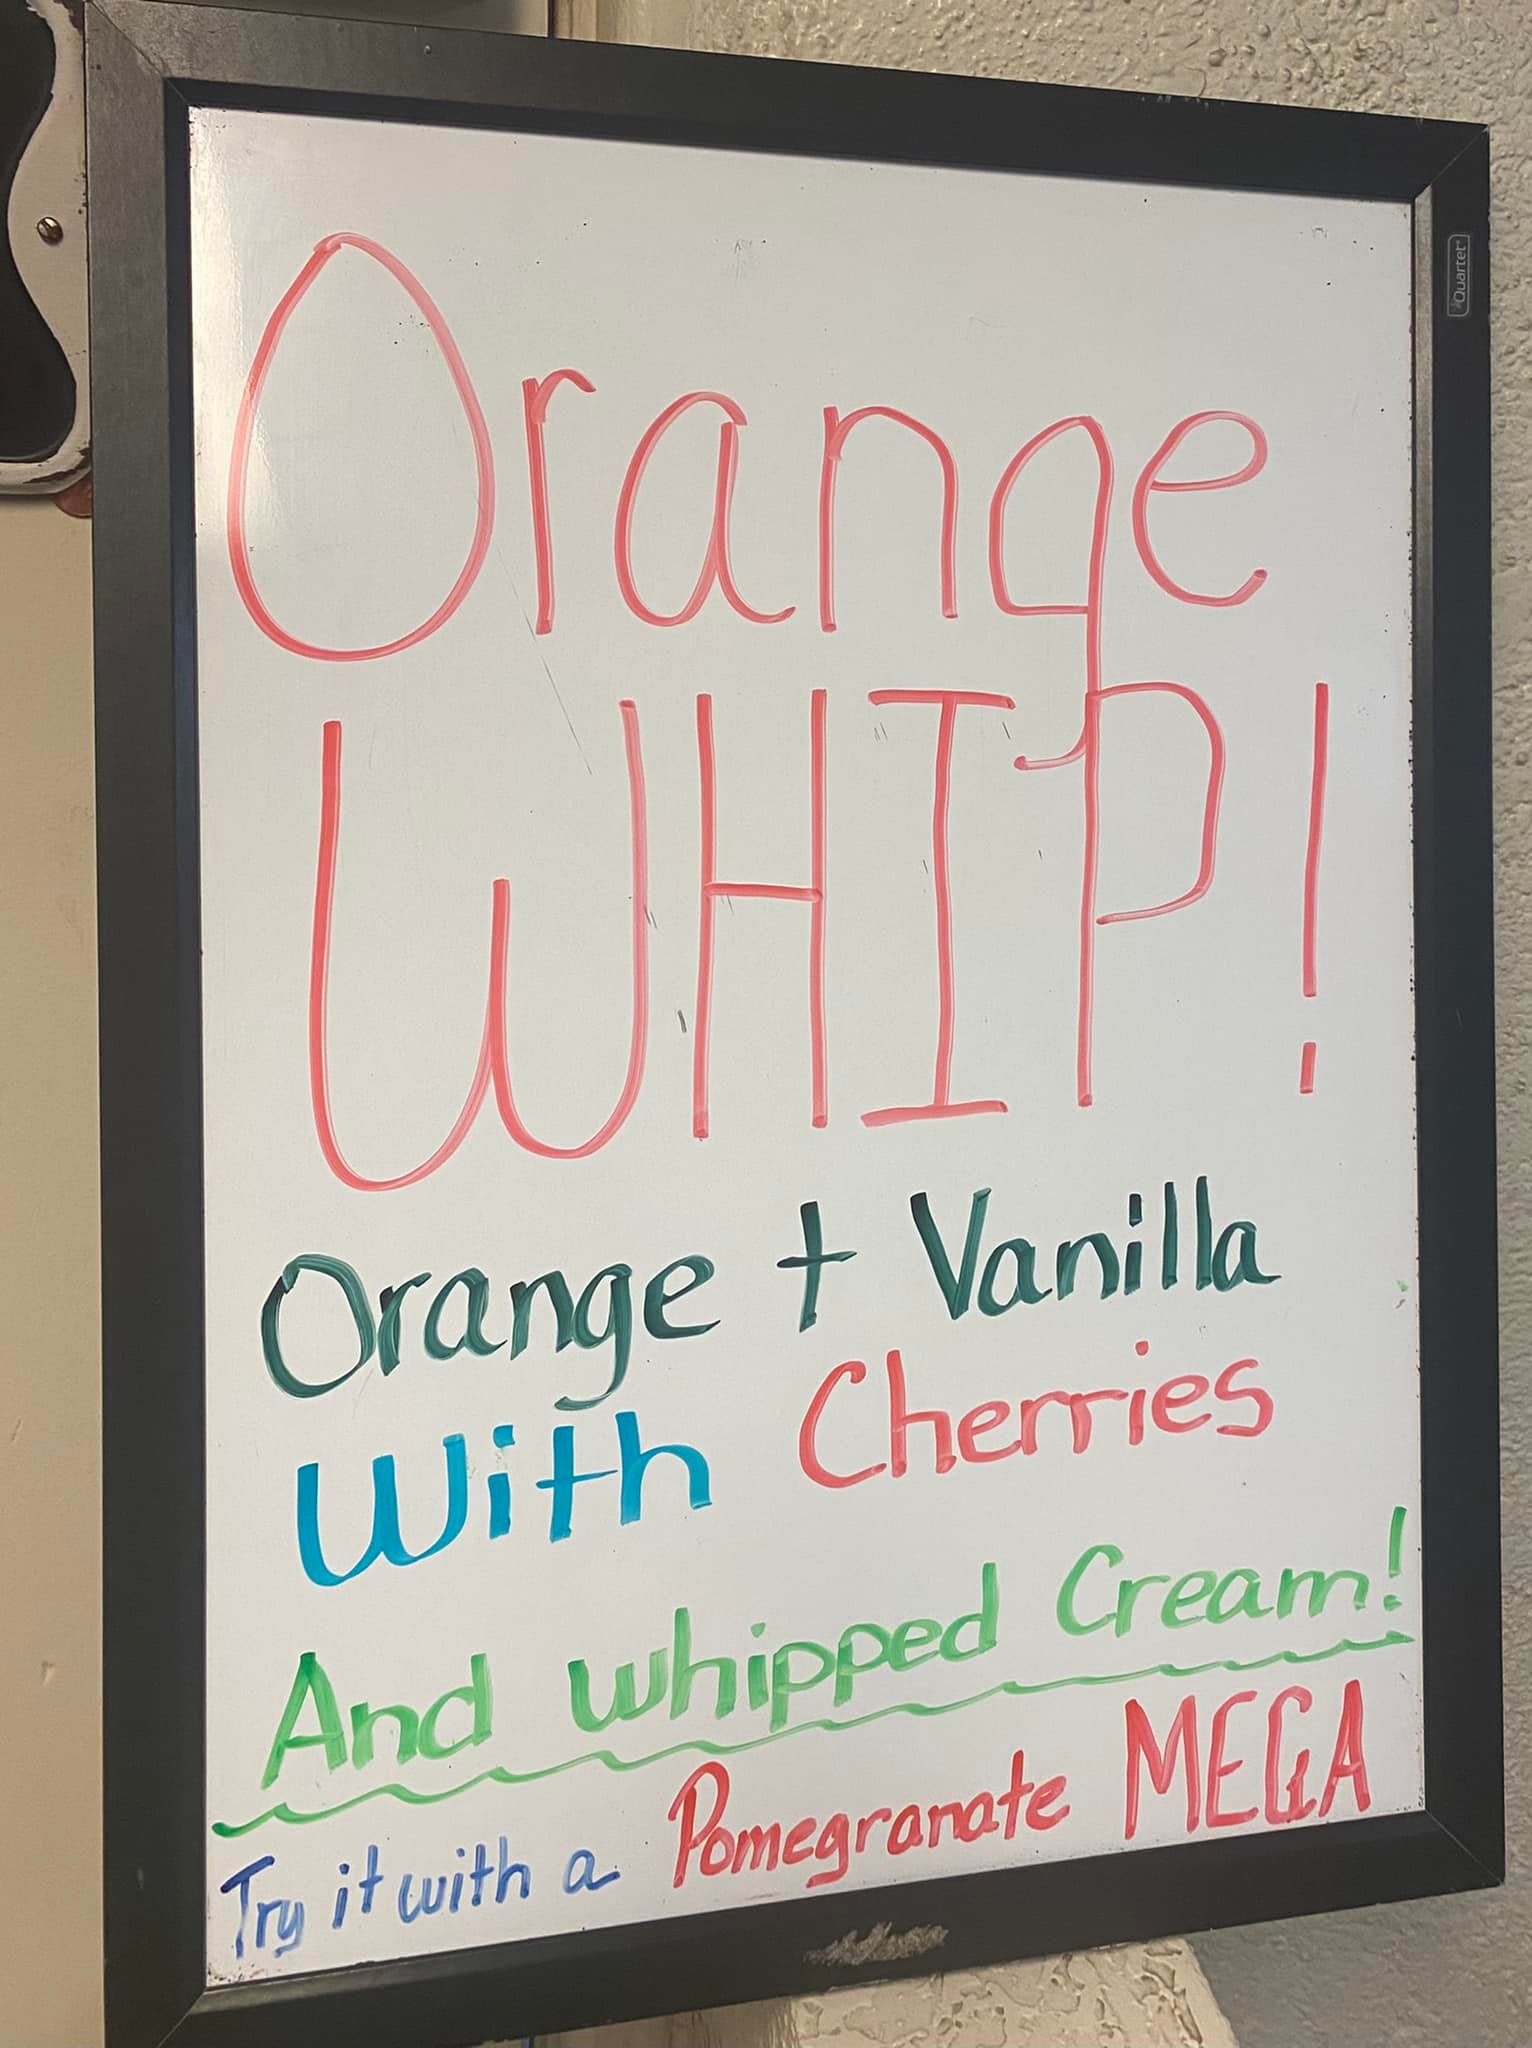 Quartet
Orange
WHIP!
Orange + Vanilla
With Cherries
And whipped Cream!
Try it with a Pomegranate MEGA